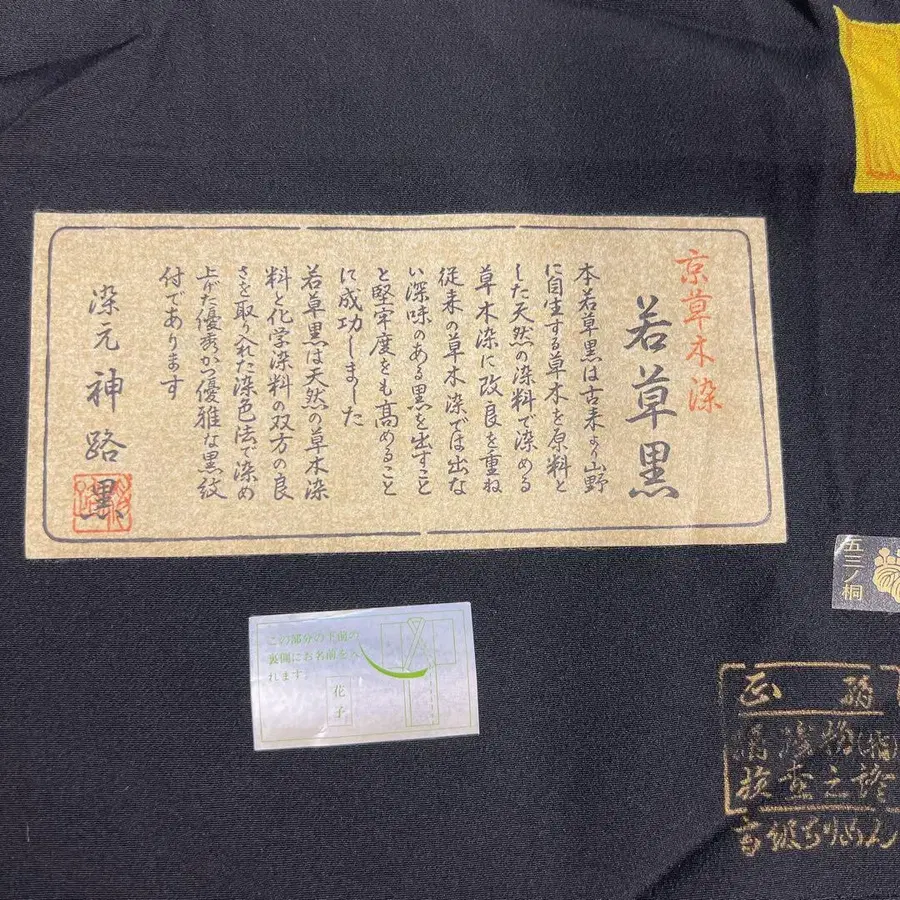 京草木染
若草黒
本若草黒は古来より山野
に自生する草木を原料と
した天然の染料で染める
草木染に改良を重ね
従来の草木染では出な
い深味のある黒を出すこと
と堅牢度をも高めること
に成功しました
若草黒は天然の草木染
料と化学染料の双方の良
さを取り入れた染色法で染め
上げた優秀かつ優雅な黒紋
付であります
染元神路黒
この部分の下前の
裏側にお名前を入
れます。
花子
五三ノ桐
正絹
検査之證
高級ちりめん